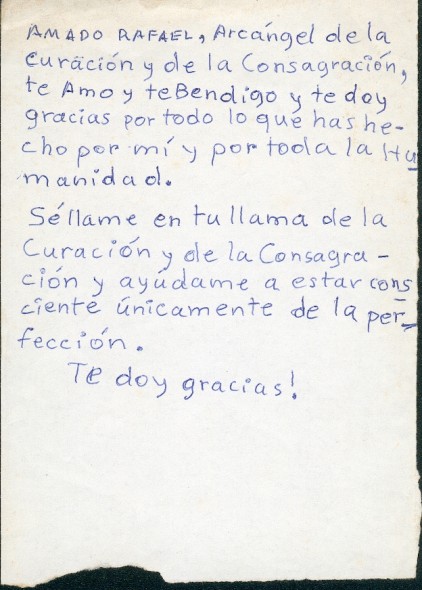 AMADO RAFAEL, Arcángel de la
Curación y de la Consagración,
te Amo y te Bendigo y te doy
gracias por todo lo que has he-
cho por mí y por toda la Hu
manidad.
Séllame en tu llama de la
Curación y de la Consagra-
ción y ayúdame a estar cons
ciente únicamente de la per-
fección.
Te doy gracias!